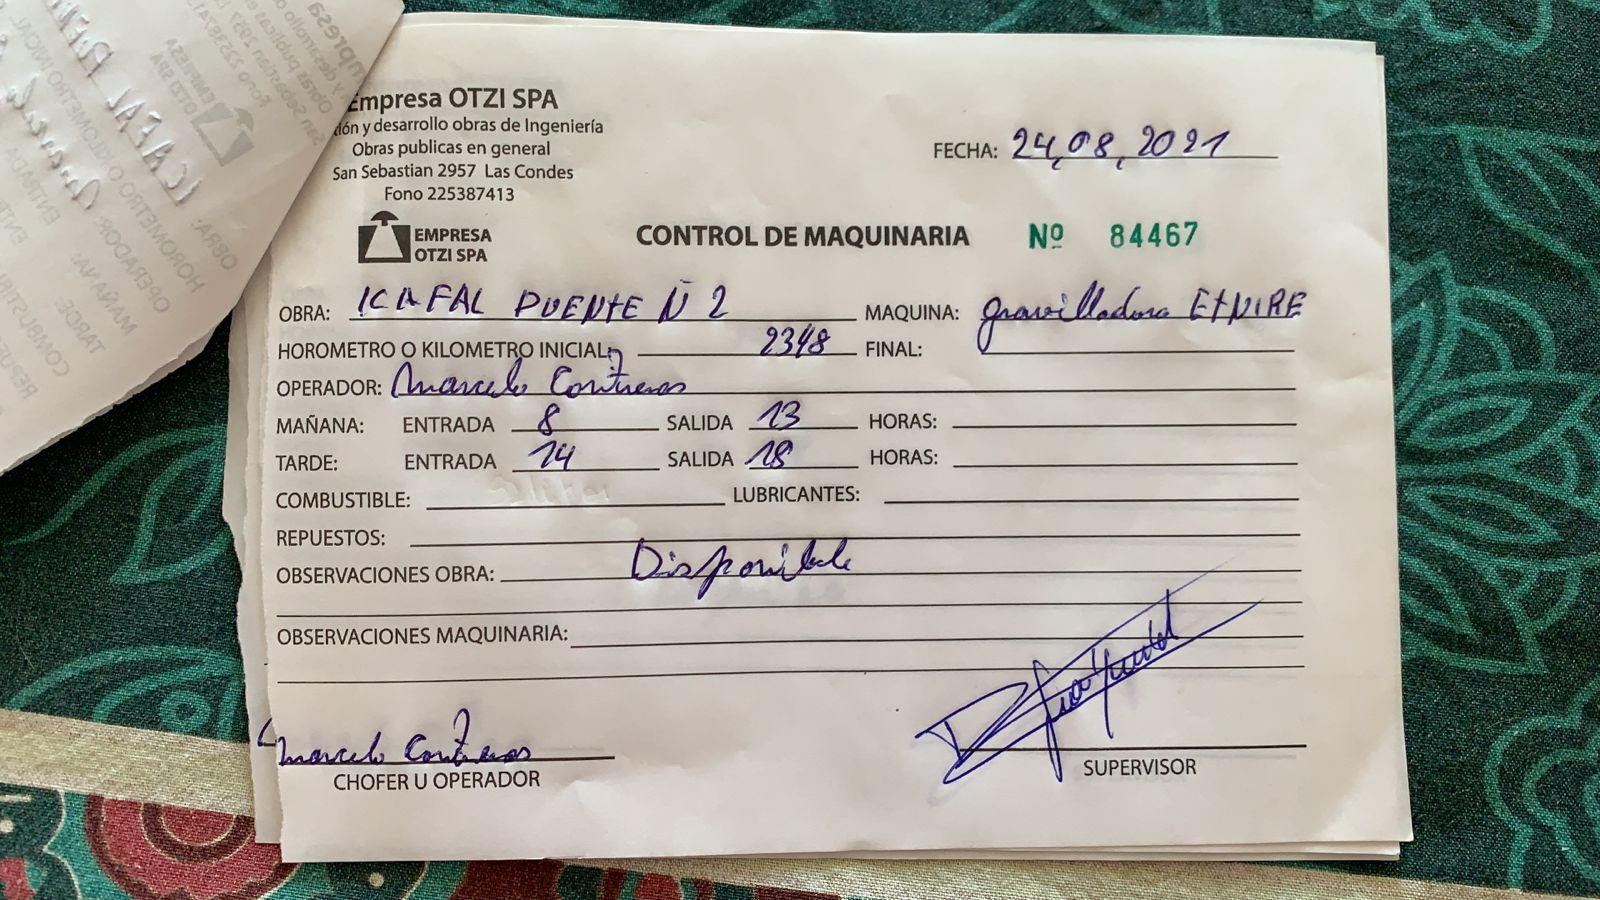 Empresa OTZI SPA
ión y desarrollo obras de Ingeniería
Obras publicas en general
San Sebastian 2957 Las Condes
Fono 225387413
EMPRESA
OTZI SPA
FECHA: 24,08,2021
CONTROL DE MAQUINARIA Nº 84467
OBRA: ICAFAL PUENTE Ñ 2 MAQUINA: gravilladora ETNIRE
HOROMETRO O KILOMETRO INICIAL: 2348 FINAL:
OPERADOR: Marcelo Contreras
MAÑANA: ENTRADA 8 SALIDA 13 HORAS:
TARDE: ENTRADA 14 SALIDA 18 HORAS:
COMBUSTIBLE: LUBRICANTES:
REPUESTOS:
OBSERVACIONES OBRA: Disponible
OBSERVACIONES MAQUINARIA:
Marcelo Contreras
CHOFER U OPERADOR
SUPERVISOR